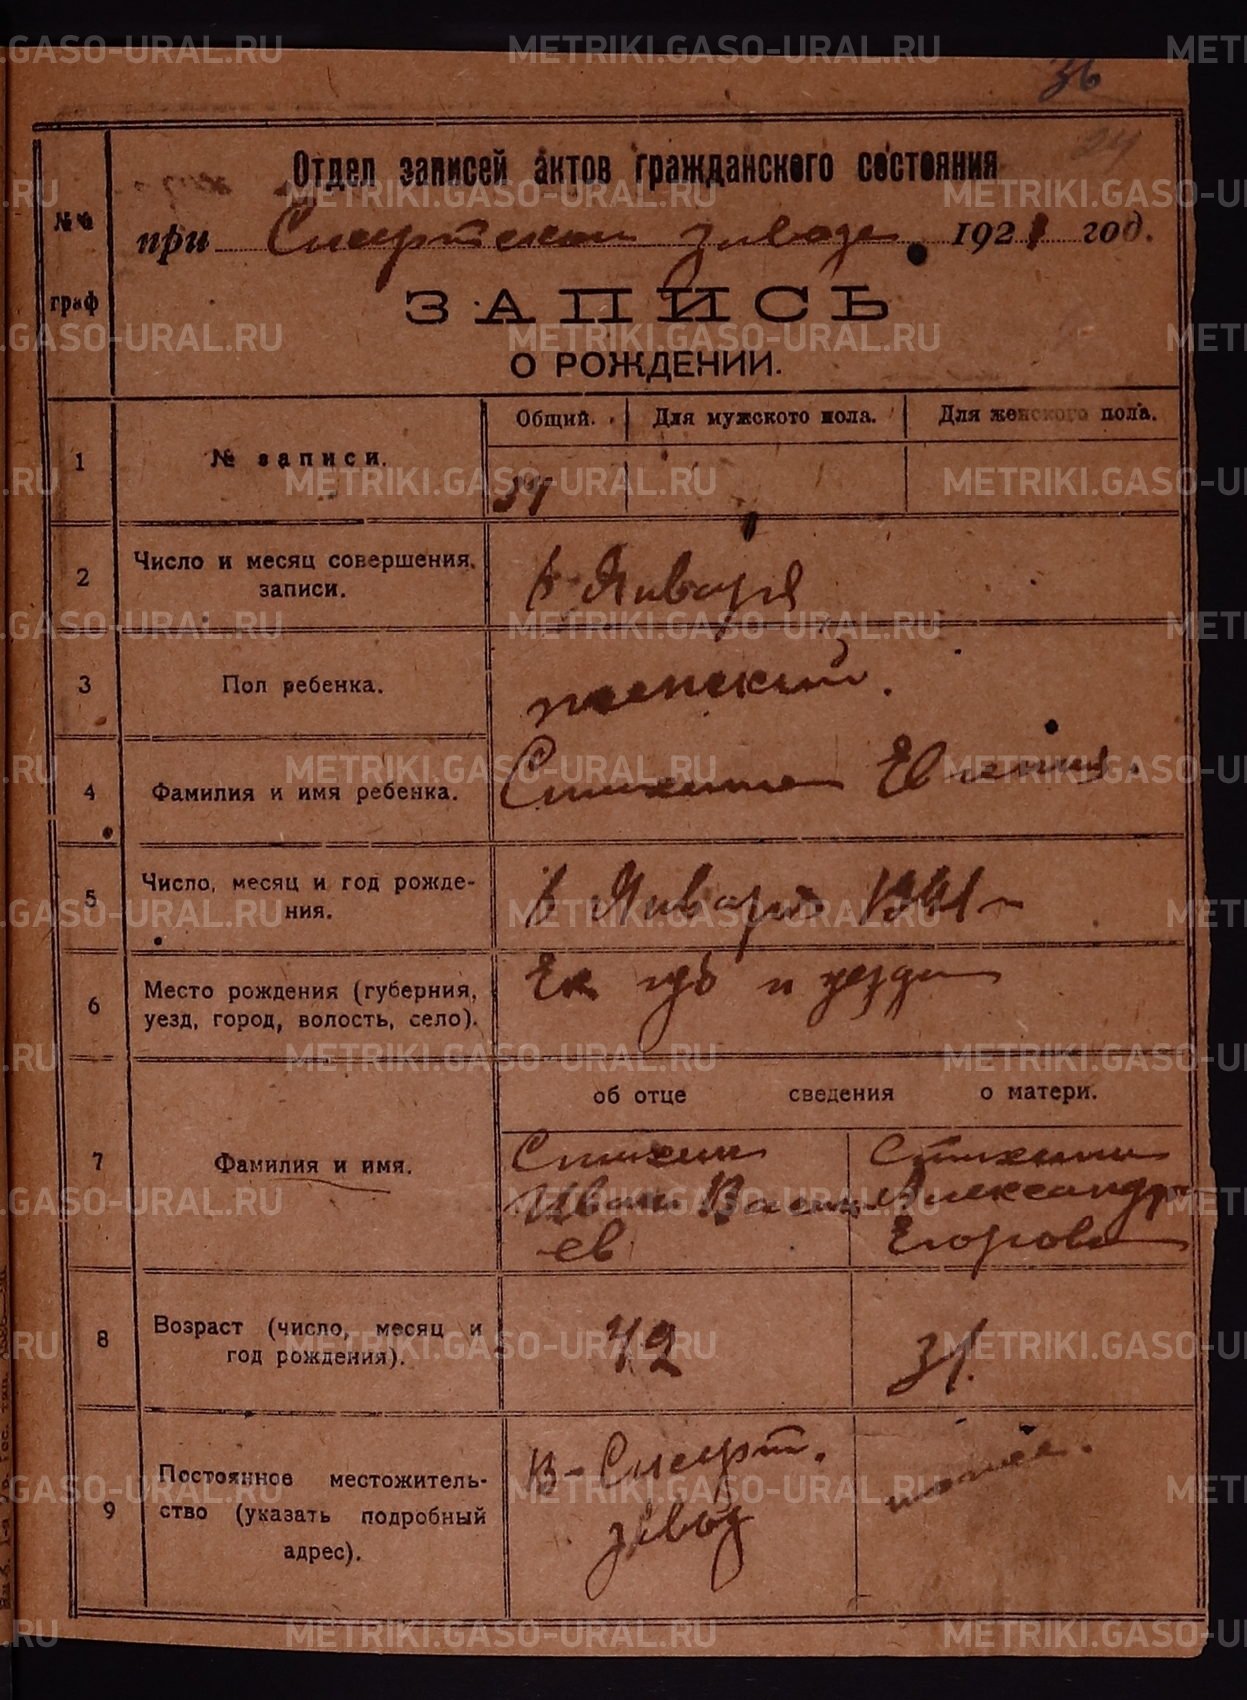 36
24
Отдел записей актов гражданского состояния
при Сысертском заводе 1921 год.
№№
граф
ЗАПИСЬ
О РОЖДЕНИИ.
Общий. Для мужского пола. Для женского пола.
1 № записи.
34
2 Число и месяц совершения записи.
Января
3 Пол ребенка.
женский.
4 Фамилия и имя ребенка.
Евгения.
5 Число, месяц и год рожде-
ния.
Января 1921 г
6 Место рождения (губерния,
уезд, город, волость, село).
Ек губ и уезда
об отце сведения о матери.
7 Фамилия и имя.
Иван Васил
ев
Александра
Егорова
8 Возраст (число, месяц и
год рождения).
42
31.
9 Постоянное местожитель-
ство (указать подробный
адрес).
В-Сысерт.
завод
тоже.
METRIKI.GASO-URAL.RU